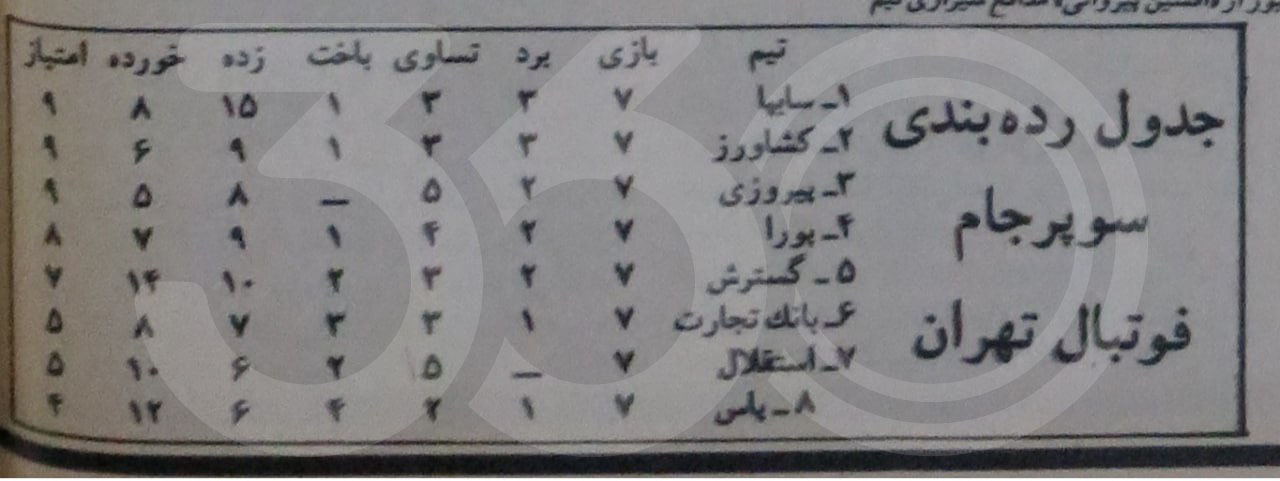 جدول رده‌بندی
سوپرجام
فوتبال تهران
تیم بازی برد تساوی باخت زده خورده امتیاز
۱ـ سایپا ۷ ۳ ۳ ۱ ۱۵ ۸ ۹
۲ـ کشاورز ۷ ۳ ۳ ۱ ۹ ۶ ۹
۳ـ پیروزی ۷ ۲ ۵ ـ ۸ ۵ ۹
۴ـ پورا ۷ ۲ ۴ ۱ ۹ ۷ ۸
۵ـ گسترش ۷ ۲ ۳ ۲ ۱۰ ۱۴ ۷
۶ـ بانك تجارت ۷ ۱ ۳ ۳ ۷ ۸ ۵
۷ـ استقلال ۷ ـ ۵ ۲ ۶ ۱۰ ۵
۸ـ پاس ۷ ۱ ۲ ۴ ۶ ۱۲ ۴
360